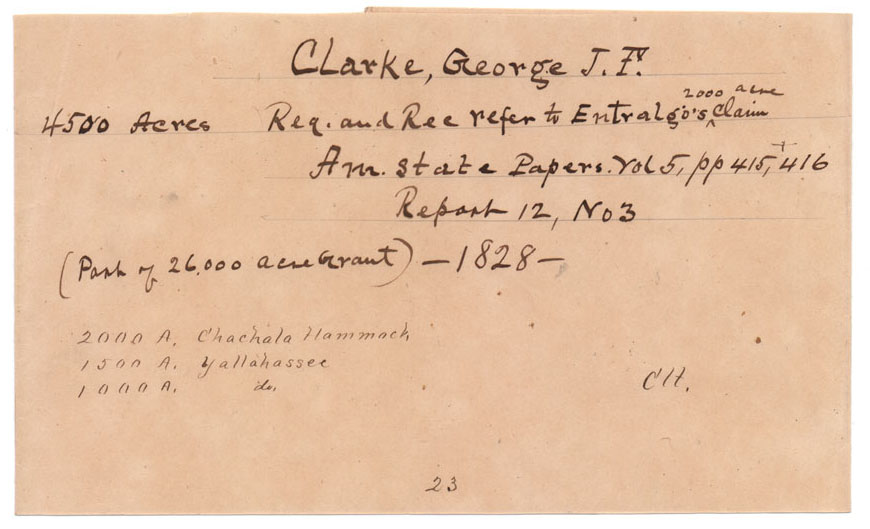 Clarke, George J. F.
2000 acre
4500 Acres Req. and Rec refer to Entralgo's ‸ Claim
Am. State Papers. Vol 5, pp 415, + 416
Report 12, No 3
(Part of 26.000 acre Grant) — 1828 —
2000 A. Chachala Hammock
1500 A. Yallahassee
1000 A. do.
CH.
23